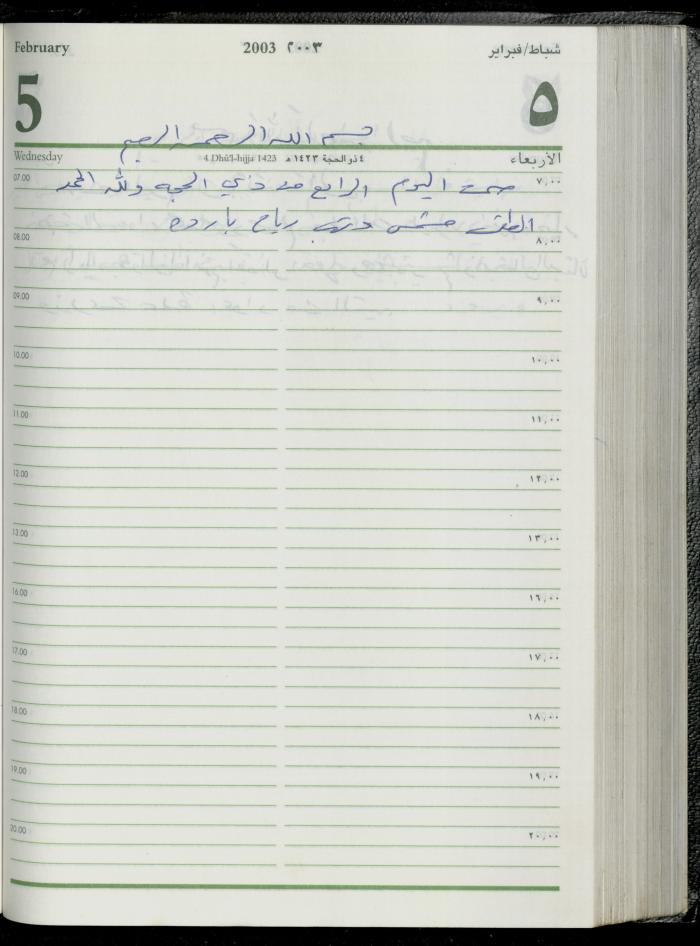 February 2003 ٢٠٠٣ شباط/فبراير
5 ٥
بسم الله الرحمن الرحيم
Wednesday 4 Dhû'l-hijja 1423 ٤ ذو الحجة ١٤٢٣ هـ الأربعاء
07.00 صمت اليوم الرابع من ذي الحجه ولله الحمد ٧,٠٠
الطقس مشمس رياح بارده
08.00 ٨,٠٠
09.00 ٩,٠٠
10.00 ١٠,٠٠
11.00 ١١,٠٠
12.00 ١٢,٠٠
13.00 ١٣,٠٠
16.00 ١٦,٠٠
17.00 ١٧,٠٠
18.00 ١٨,٠٠
19.00 ١٩,٠٠
20.00 ٢٠,٠٠